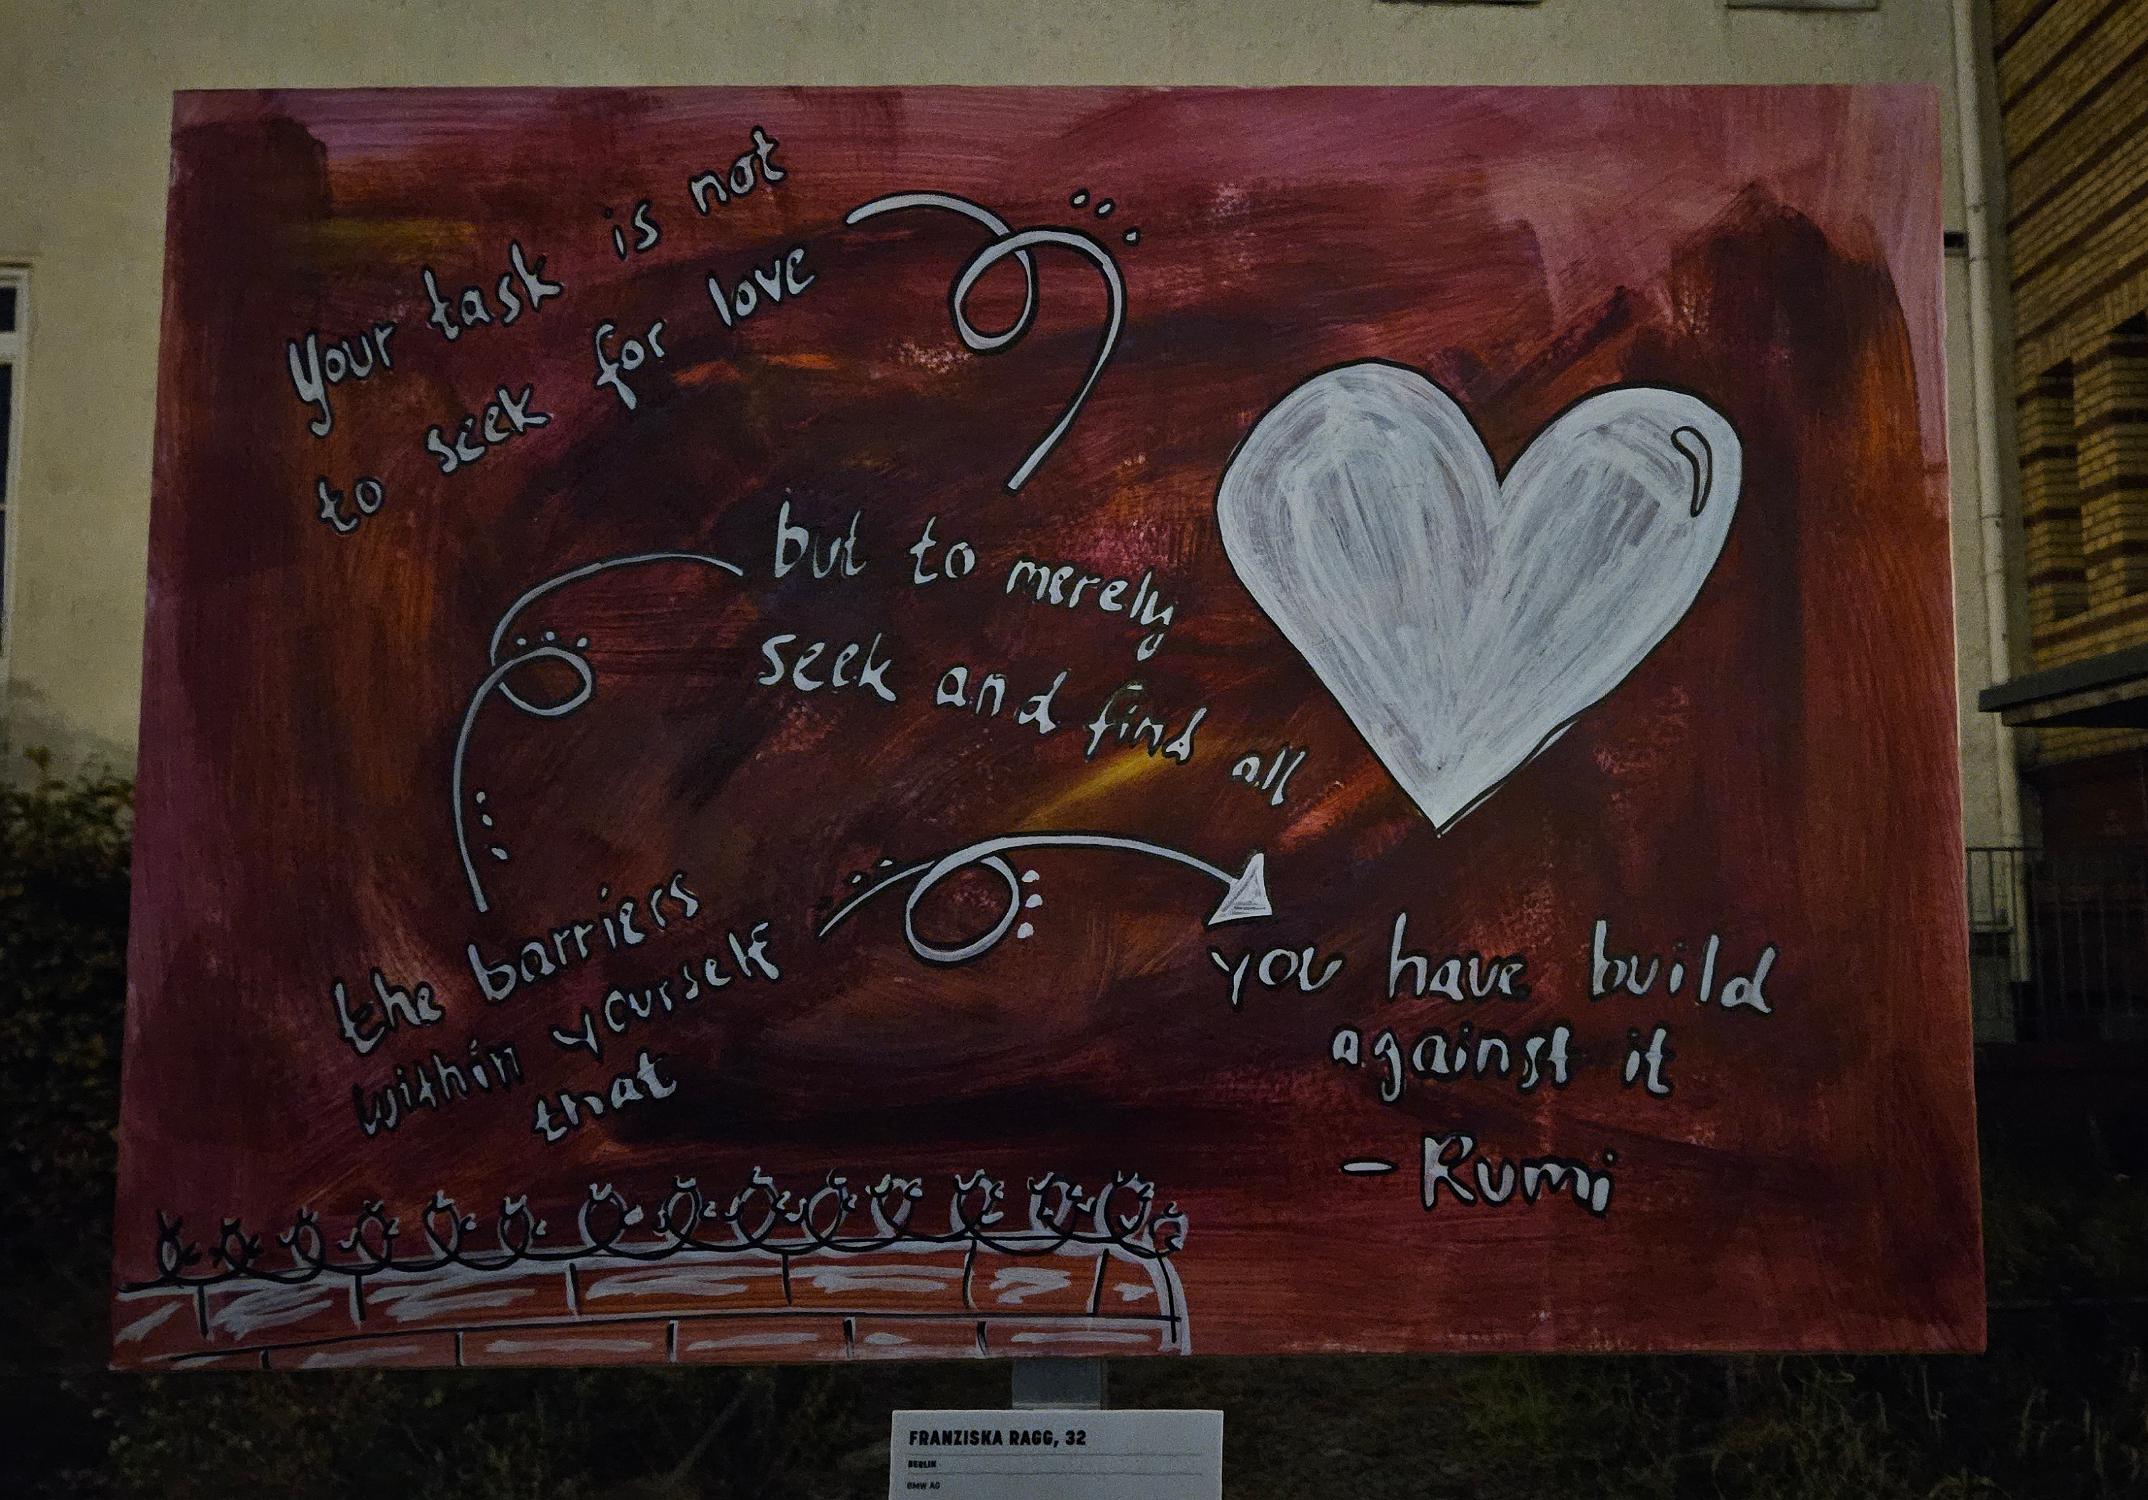 Your task is not
to seek for love
but to merely
seek and find all
the barriers
within yourself
that
you have build
against it
- Rumi
FRANZISKA RAGG, 32
BERLIN
BMW AG